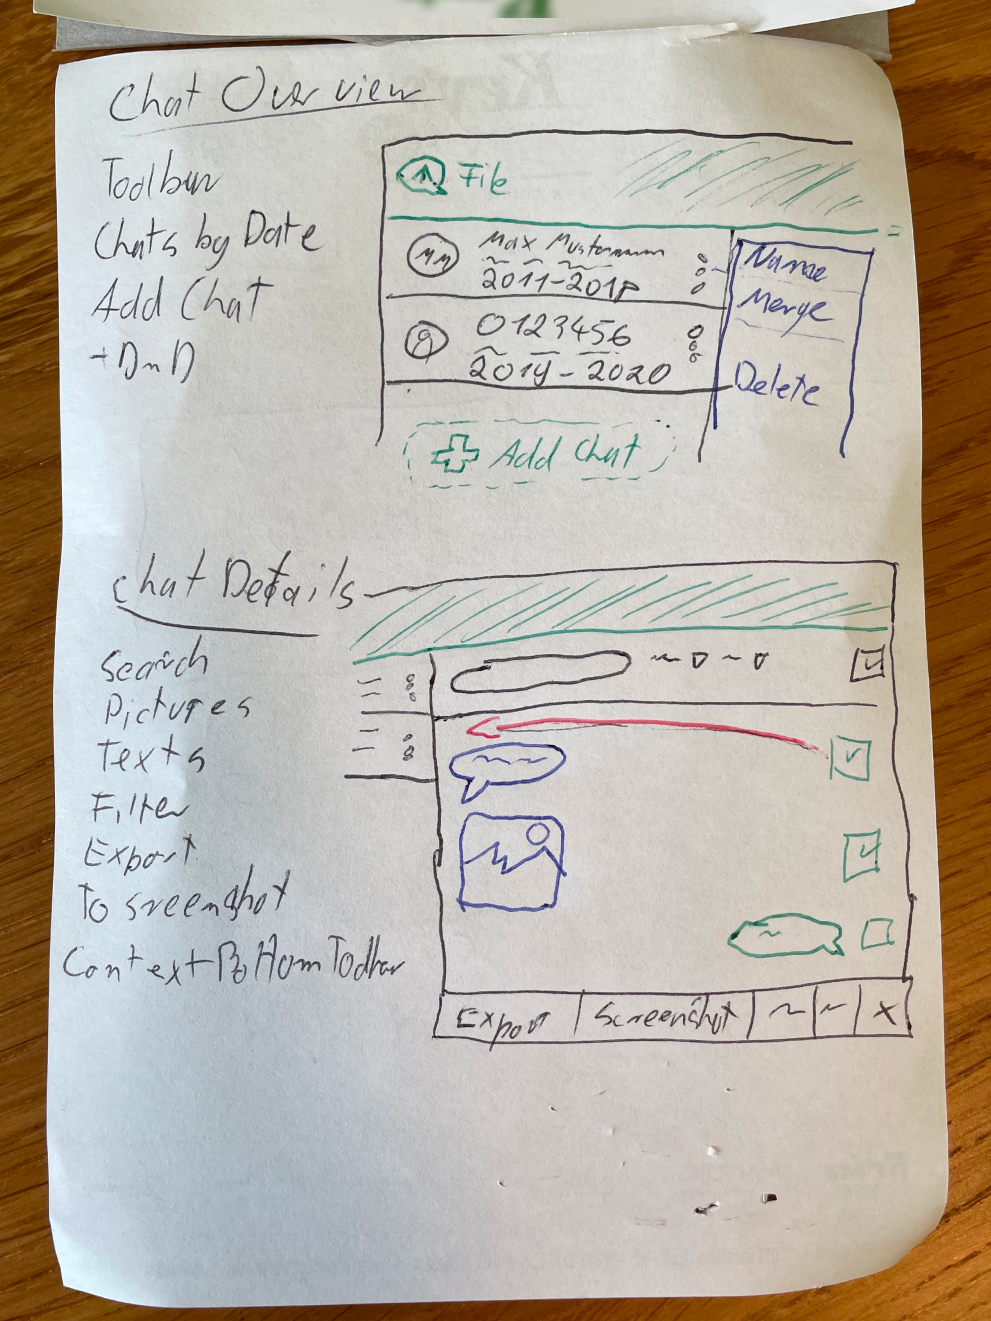 Chat Overview
Toolbar
Chats by Date
Add Chat
+ DnD
File
MM
Max Mustermann
2011-2018
0123456
2014-2020
Name
Merge
Delete
Add Chat
Chat Details
Search
Pictures
Texts
Filter
Export
To sreenshot
Context Bottom Toolbar
Export
Screenshot
X